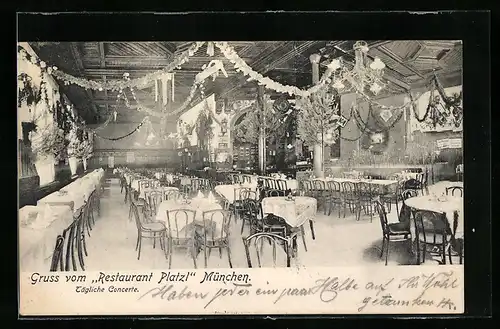 Gruss vom „Restaurant Platzl" München.
Tägliche Concerte.
Haben jeder ein paar Halbe auf Ihr Wohl
getrunken